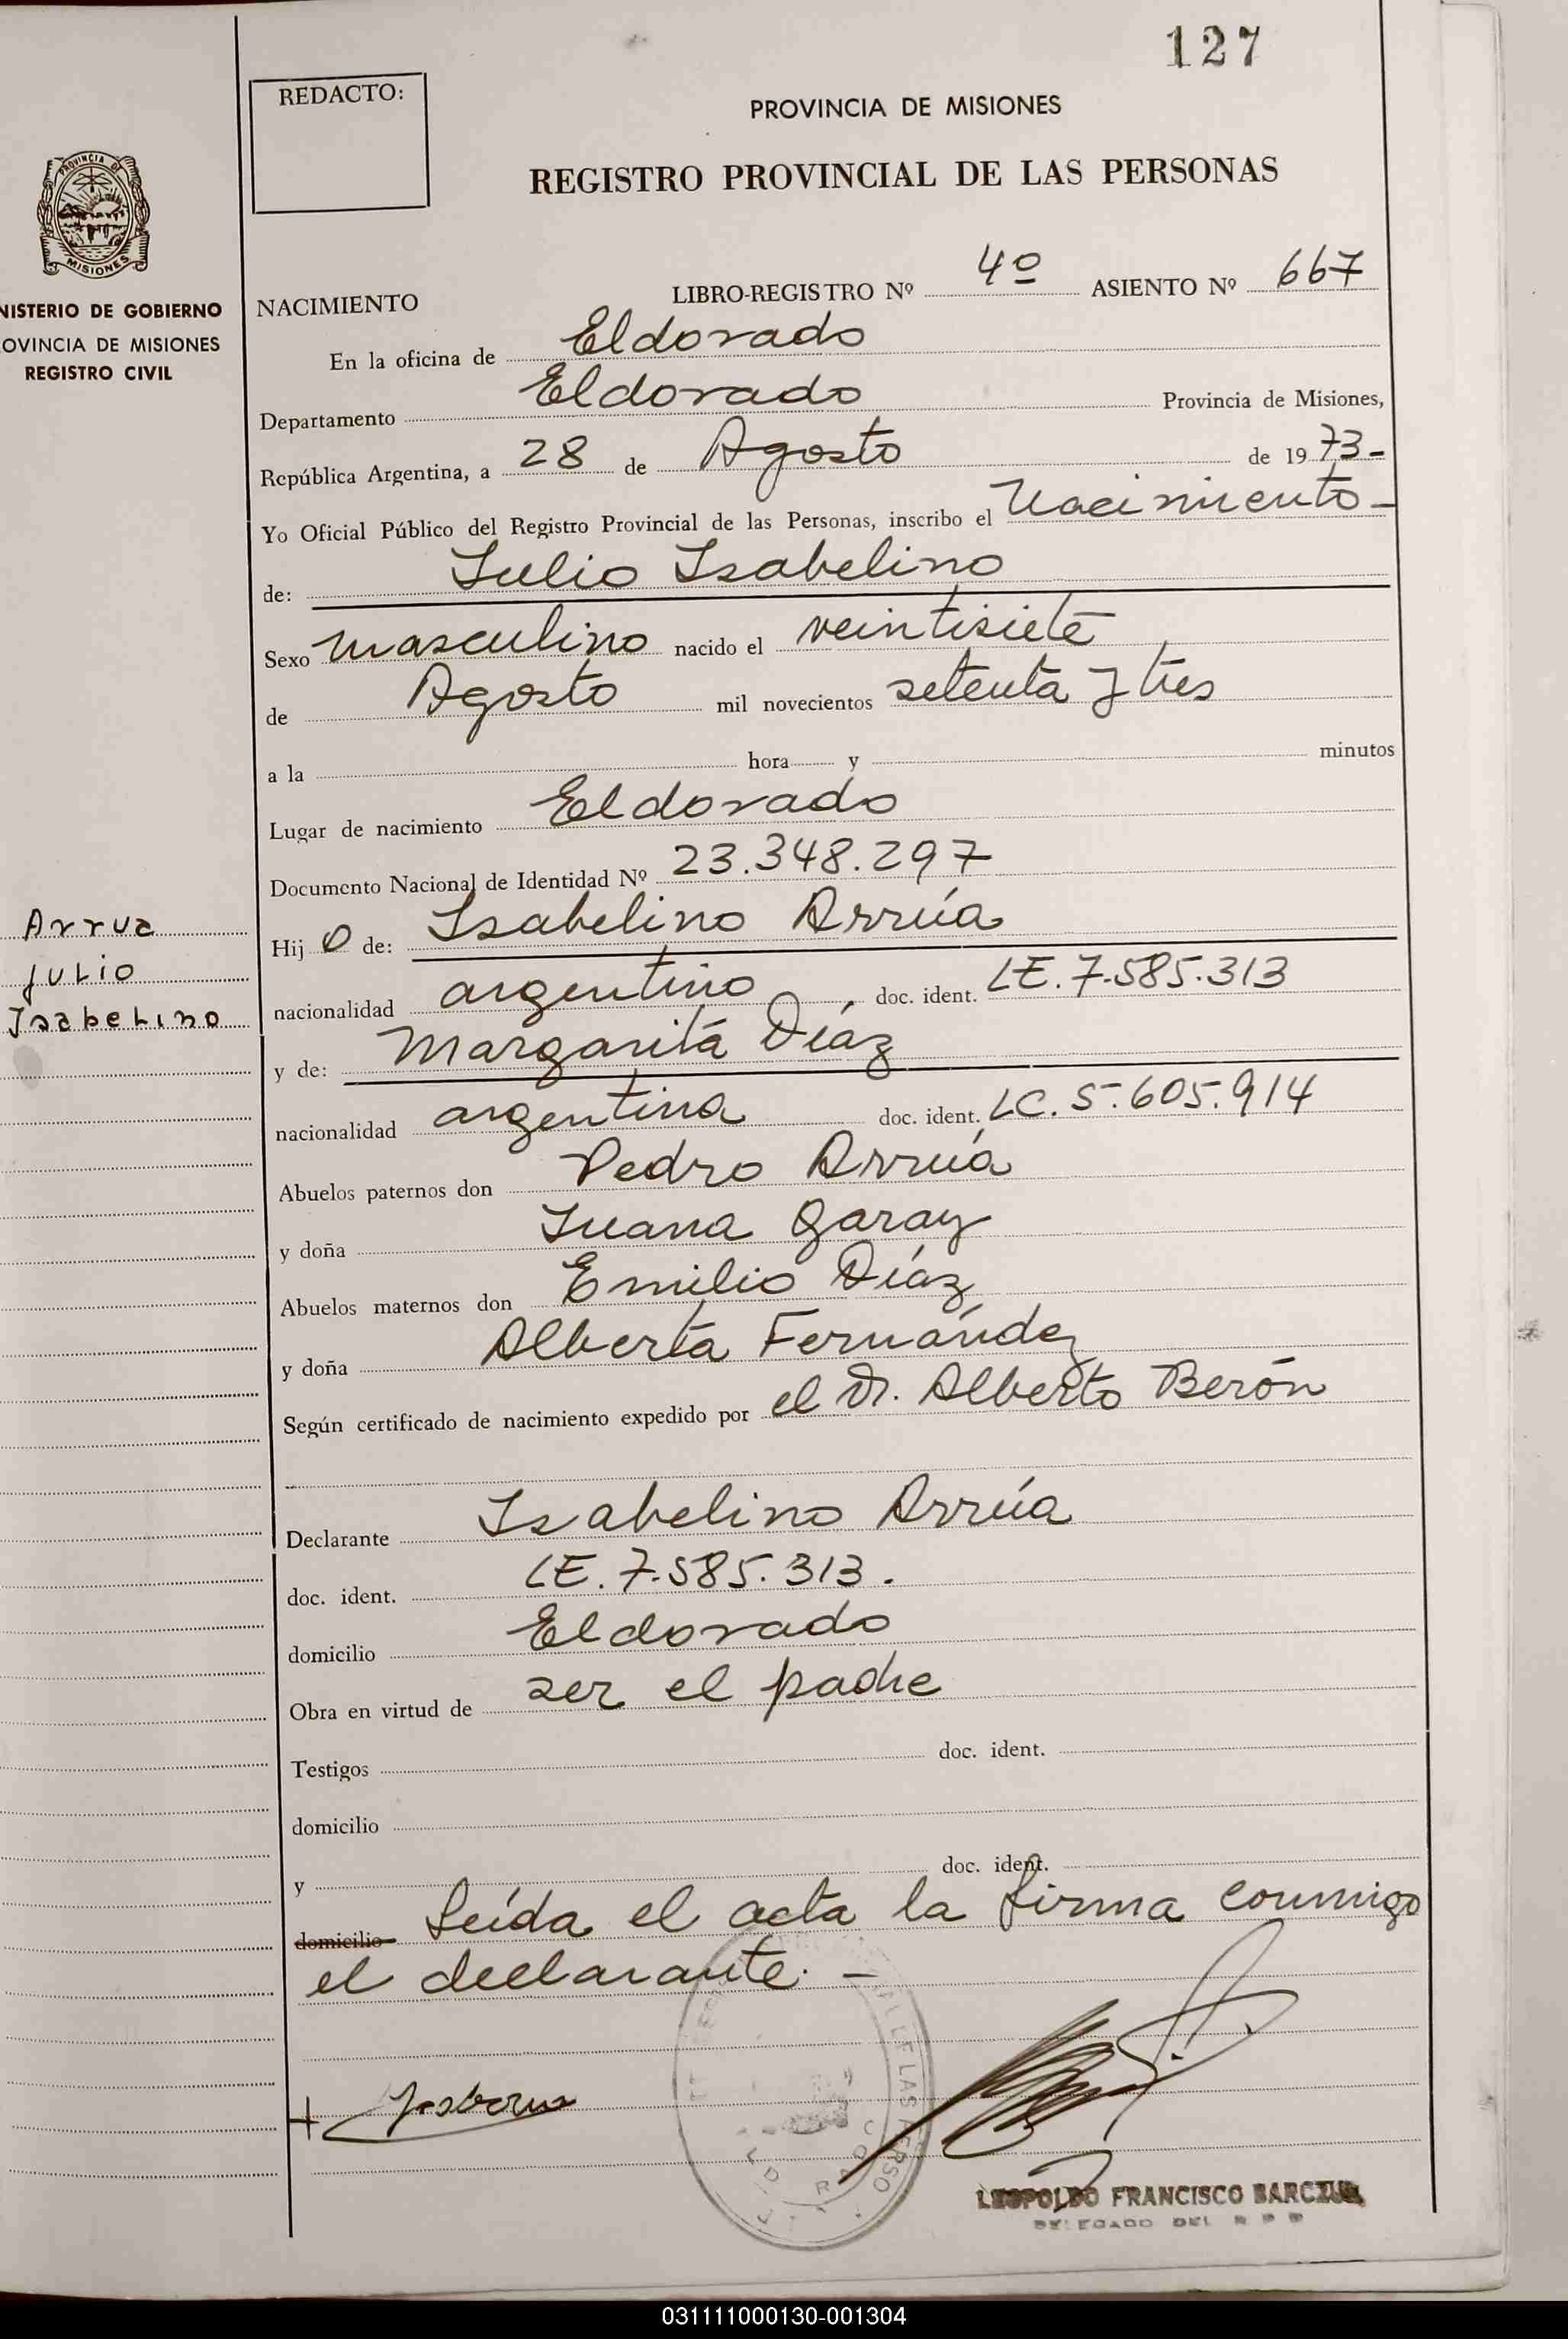 127
REDACTO:
PROVINCIA DE MISIONES
REGISTRO PROVINCIAL DE LAS PERSONAS
PROVINCIA DE
MISIONES
NISTERIO DE GOBIERNO
OVINCIA DE MISIONES
REGISTRO CIVIL
NACIMIENTO LIBRO-REGISTRO Nº 4º ASIENTO Nº 667
En la oficina de Eldorado
Departamento Eldorado Provincia de Misiones,
República Argentina, a 28 de Agosto de 1973-
Yo Oficial Público del Registro Provincial de las Personas, inscribo el Nacimiento-
de: Julio Isabelino
Sexo masculino nacido el veintisiete
de Agosto mil novecientos setenta y tres
a la hora y minutos
Lugar de nacimiento Eldorado
Documento Nacional de Identidad Nº 23.348.297
Arrua
Julio
Isabelino
Hijo de: Isabelino Arrúa
nacionalidad argentino, doc. ident. LE. 7.585.313
y de: Margarita Díaz
nacionalidad argentina doc. ident. LC. 5.605.914
Abuelos paternos don Pedro Arrúa
y doña Juana Garay
Abuelos maternos don Emilio Díaz
y doña Alberta Fernández
Según certificado de nacimiento expedido por el Dr. Alberto Berón
Declarante Isabelino Arrúa
doc. ident. LE. 7.585.313.
domicilio Eldorado
Obra en virtud de ser el padre
Testigos doc. ident.
domicilio
y doc. ident.
domicilio Leída el acta la firma conmigo
el declarante. -
LEOPOLDO FRANCISCO
DELEGADO DEL R P P
031111000130-001304